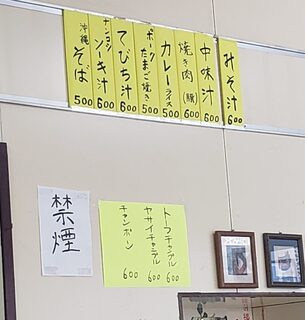 みそ汁 600
中味汁 600
焼き肉(豚) 600
カレーライス 500
ポークたまご焼き 500
てびち汁 600
ナンコツソーキ汁 600
沖縄そば 500
禁煙
トーフチャンプル 600
ヤサイチャンプル 600
チャンポン 600